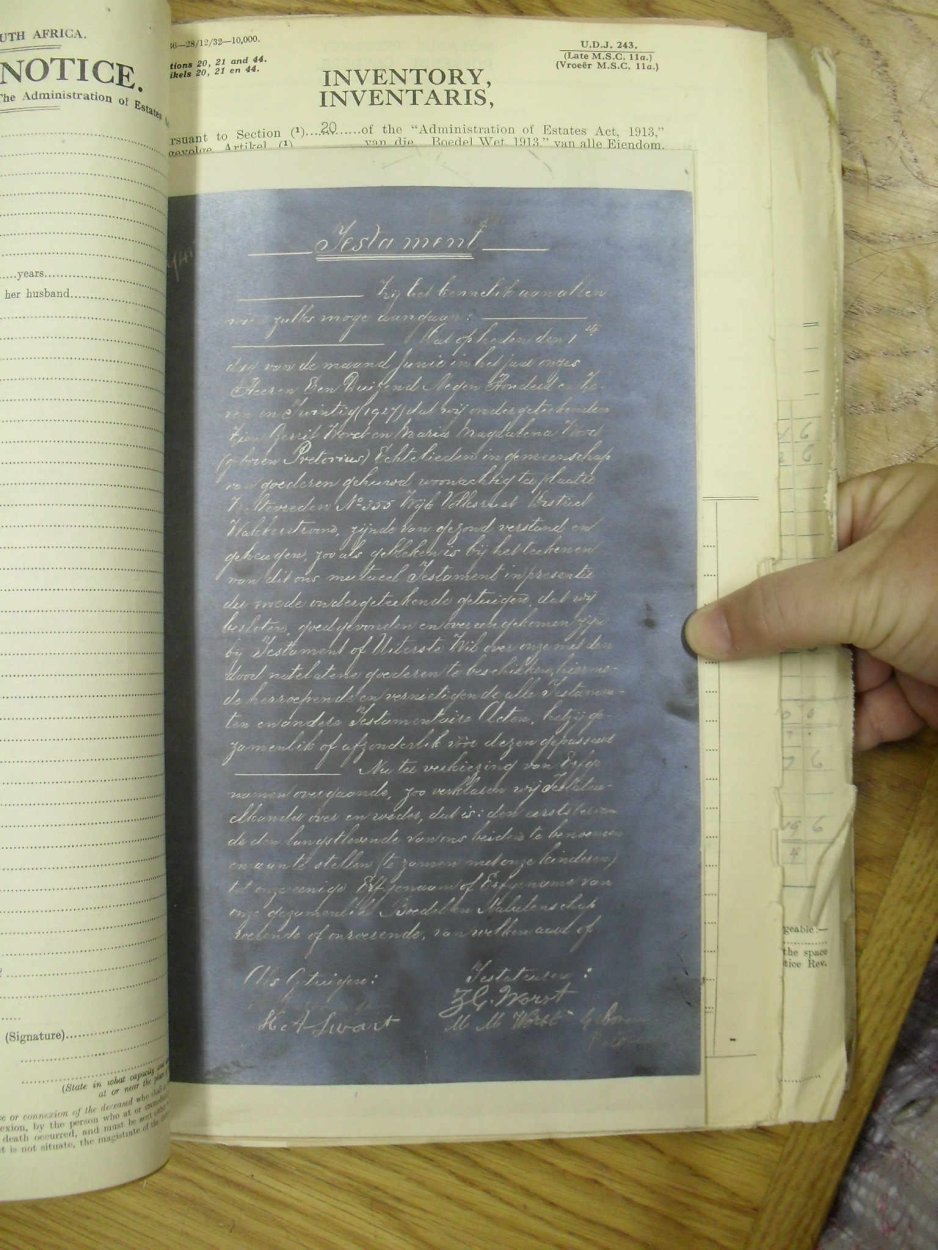 UTH AFRICA.
NOTICE.
The Administration of Estates
years
her husband
(Signature)
(State in what capacity
at or near the place
or connexion of the deceased who
exion, by the person who at or
death occurred, and must be sent
t is not situate, the magistrate of the
36—28/12/32—10,000.
tions 20, 21 and 44.
ikels 20, 21 en 44.
U.D.J. 243.
(Late M.S.C. 11a.)
(Vroeër M.S.C. 11a.)
INVENTORY,
INVENTARIS,
rsuant to Section (¹) 20 of the "Administration of Estates Act, 1913,"
gevolge Artikel (¹) van die Boedel Wet 1913," van alle Eiendom.
Testament
Zij het kennelik aan allen
wien zulks moge aangaan:
Dat op heden den 1ste
dag van de maand Junie in het jaar onzes
Heeren Een Duizend Negen Honderd en Ze-
ven en Twintig (1927) dat wij ondergetekenden
Gerrit Worst en Maria Magdalena Worst
(geboren Pretorius) Echtelieden in gemeenschap
van goederen gehuwd woonachtig te plaatse
No 355 Wyk Volksrust District
Wakkerstroom, zijnde van gezond verstand en
geheugen, zoo als gebleken is bij het teekenen
van dit ons mutueel Testament in presentie
der mede ondergetekende getuigen, dat wij
besloten, goedgevonden en overeengekomen zijn
bij Testament of Uiterste Wil over onze met den
dood natelatene goederen te beschikken, hiermo-
de herroepende en vernietigende alle Testamen-
ten en andere Testamentaire Acten, hetzij ge-
zamenlik of afzonderlik vóór dezen gepasseerd
Nu ter verkiezing van Erfge-
namen overgaande, zoo verklaren wij
over en weder, dat is: den eerststerven-
de den langstlevende van ons beiden te benoemen
en aan te stellen (te zamen met onze kinderen)
tot onze eenige Erfgenaam of Erfgename van
onze gezamenlike Boedel en Nalatenschap
roerende of onroerende, van welken aard of
Als Getuigen:
Testateuren:
Z G. Worst
H. A. Swart
M M Worst Geboren
geable:—
the space
tice Rev.
6
6
6
6
4